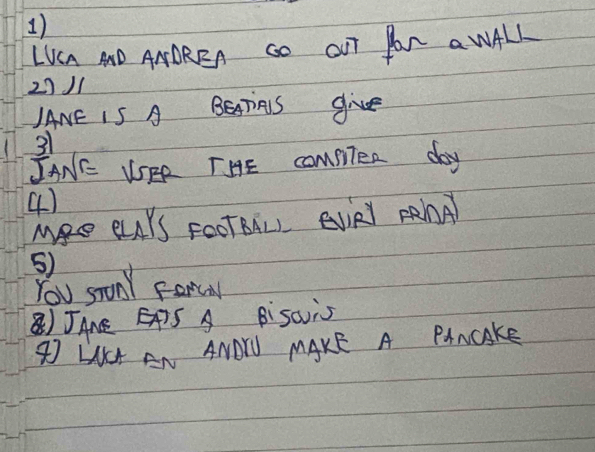 1)
LUCA AND ANDREA GO OUT for a WALL
2)
JANE IS A BEATIAIS give
3)
JANE USER THE COMPITER day
4)
MARC PLAYS FOOTBALL EVIRY FRIDAY
5)
YOU STUDY
8) JANE EATS A BiSCUiS
7) LUCA EN ANDRU MAKE A PANCAKE